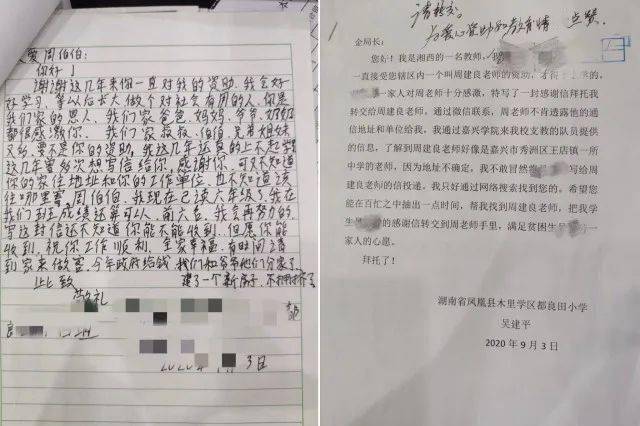 爱 周伯伯:
你好！
谢谢这几年来你一直对我的资助，我会好
好学习，等以后长大做个对社会有用的人，你是
我们家的恩人，我们家爸爸、妈妈、爷爷、奶奶
都很感激你，我们家叔叔、伯伯、兄弟姐妹
又多，要不是你的资助，我这几年还真的上不起学
这几年曾多次想写信给你，感谢你，可又不知道
你的家住地址和你的工作单位，也不知道该
往哪里寄，周伯伯，我现在已读六年级了，我在
我们班成绩还算可以，前六名，我会再努力的，
写这封信还不知道你能不能收到，但愿你能
收到，祝你工作顺利，全家幸福，有时间请
到家来做客，今年政府给钱，我们和爷爷他们分家了，
建了一个新房子，不拥挤了
此致
敬礼
3日
请转交。
为爱心资助和教育情 点赞
金局长：
您好！我是湘西的一名教师，
一直接受您辖区内一个叫周建良老师的资助，
一家人对周老师十分感激，特写了一封感谢信拜托我
转交给周建良老师，通过微信联系，周老师不肯透露他的通
信地址和单位给我，我通过嘉兴学院来我校支教的队员提供
的信息，了解到周建良老师好像是嘉兴市秀洲区王店镇一所
中学的老师，因为地址不确定，我不敢冒然 写给周
建良老师的信投递，我只好通过网络搜索找到您的。希望您
能在百忙之中抽出一点时间，帮我找到周建良老师，把我学
生 的感谢信转交到周老师手里，满足贫困生
一家人的心愿。
拜托了！
湖南省凤凰县木里学区都良田小学
吴建平
2020 年 9 月 3 日